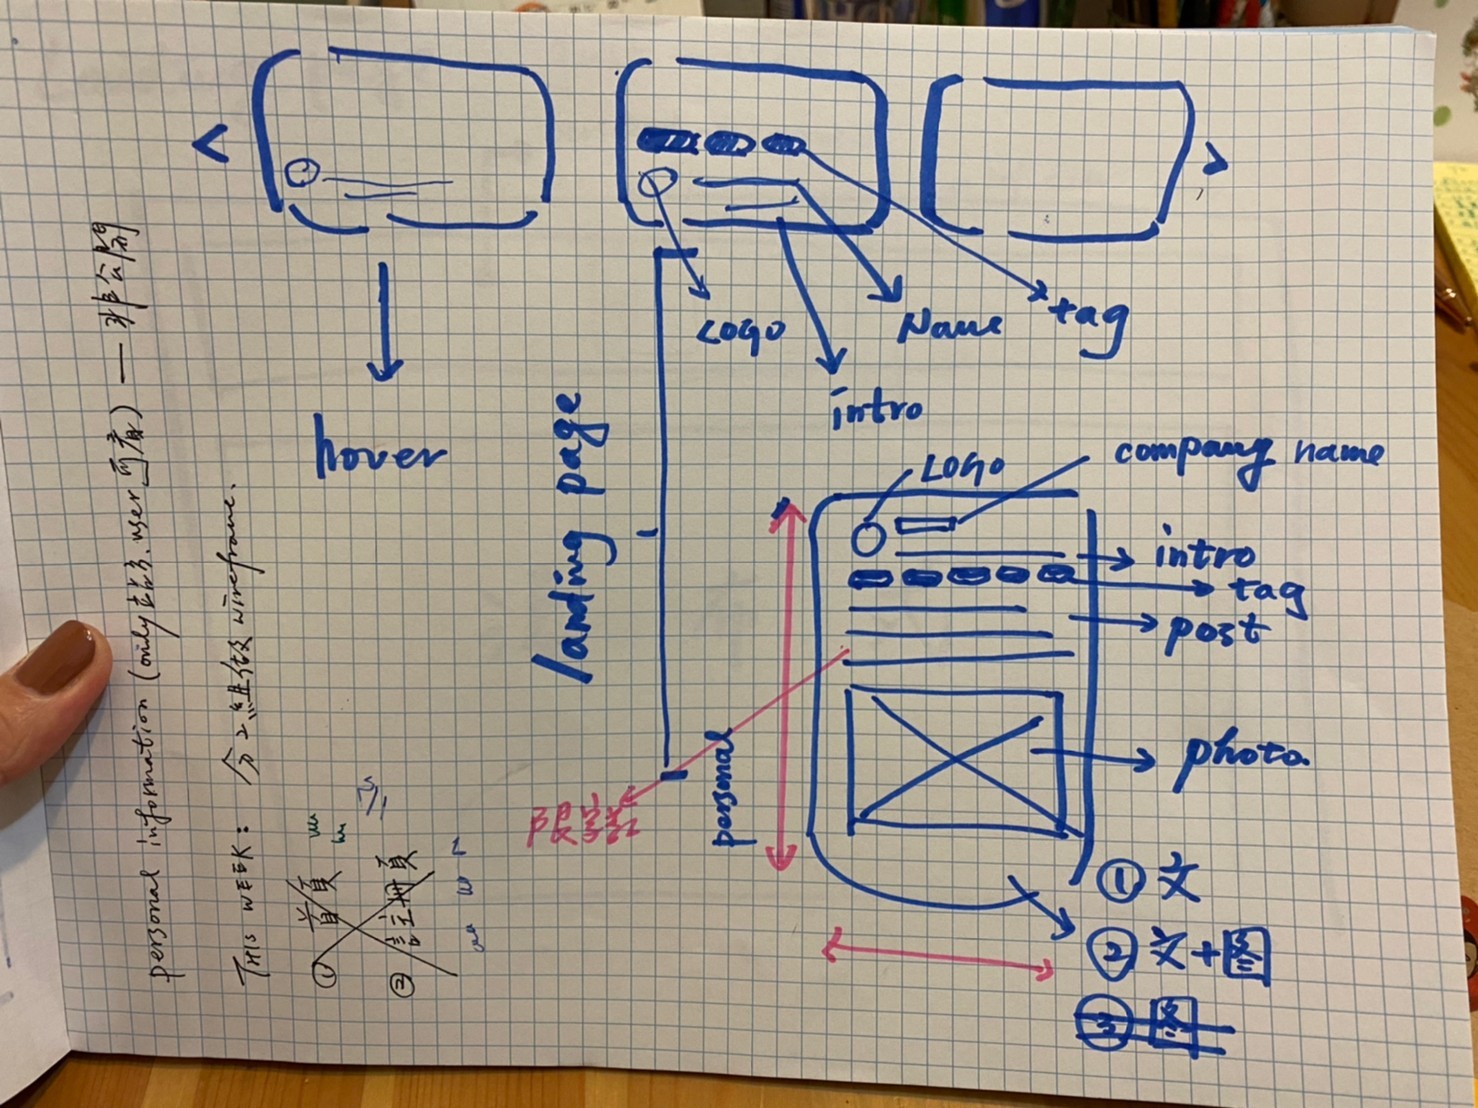 <
>
LOGO
Name
tag
intro
hover
landing page
LOGO
company name
intro
tag
post
photo
personal
限字数
① 文
② 文+图
③ 图
personal information (only user 两者) — 非公開
THIS WEEK: 分2 做 wireframe.
① 首頁
② 註冊頁